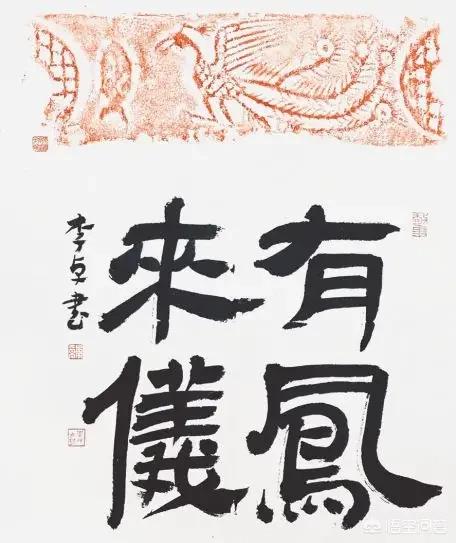 有鳳
來儀
李卓書
悟空问答